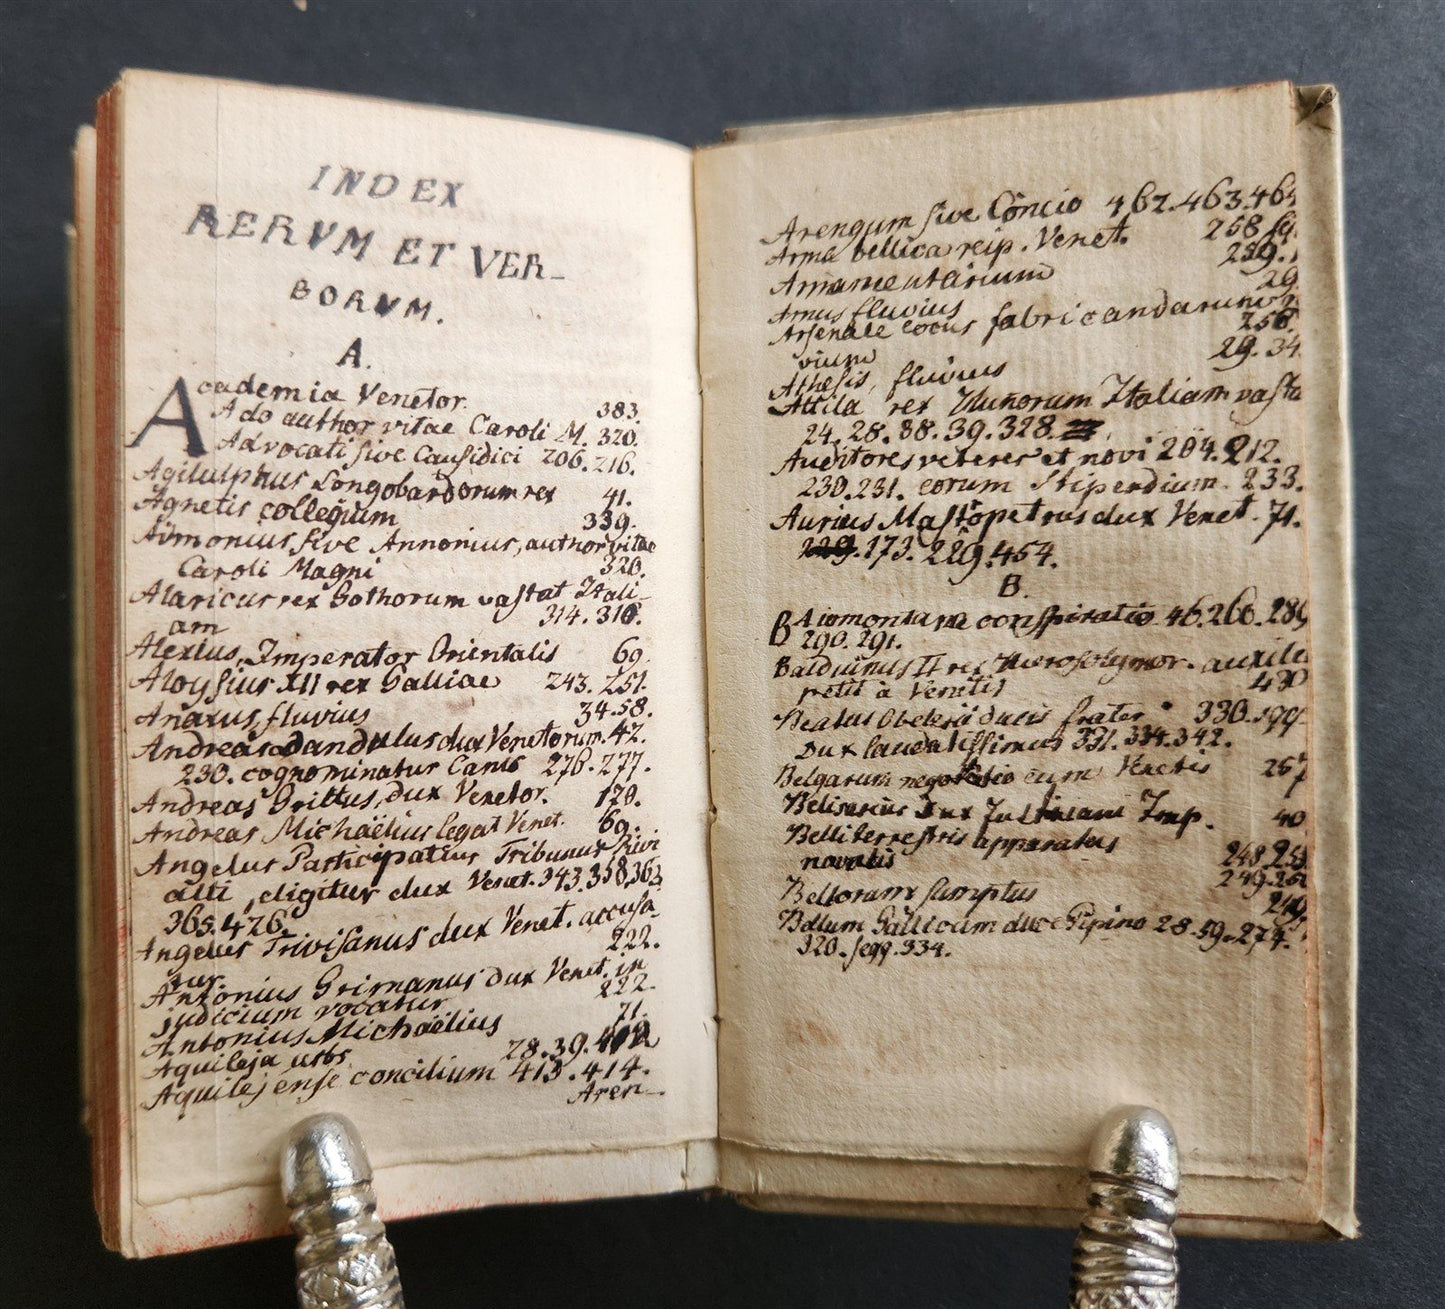 INDEX
RERVM ET VER-
BORVM.
A.
Academia Venetor. 383.
Ado author vitae Caroli M. 320.
Advocati sive Causidici 206.216.
Agilulphus Longobardorum rex 41.
Agnetis collegium 339.
Aimonius, sive Annonius, author vitae
Caroli Magni 320.
Alaricus rex Gothorum vastat Itali-
am 314.318.
Alexius, Imperator Orientalis 69.
Aloysius XII rex Galliae 243.251.
Anaxus, fluvius 34.58.
Andreas Dandulus dux Venetorum. 42.
230. cognominatur Canis 276.277.
Andreas Grittus, dux Venetor. 170.
Andreas Michaëlius legat Venet. 69.
Angelus Participatius Tribunus Rivi
alti, eligitur dux Venet. 343.358.363
365.426.
Angelus Trivisanus dux Venet. accusa-
tur. 222.
Antonius Grimanus dux Venet. in
judicium vocatur 222.
Antonius Michaëlius 71.
Aquileja urbs 28.39.
Aquilejense concilium 413.414.
Aren-
Arengum sive Concio 462.463.464
Arma bellica reip. Venet. 258 sq.
Armamentarium 259.
Arnus fluvius 29
Arsenale locus fabricandarum
vium 258.
Athesis, fluvius 29.34.
Attila rex Hunorum Italiam vasta
24.28.38.39.328.
Auditores veteres et novi 204.212.
230.231. eorum stipendium. 233.
Aurius Mastopetrus dux Venet. 71.
229.173.229.454.
B.
Baiomontana conspiratio 46.260.289
290.291.
Balduinus II rex Hierosolymor. auxili
petit à Venetis 430
Beatus Obelerii ducis frater 330.
Dux laudatissimus 331.334.342.
Belgarum negotiatio cum Venetis 257
Belisarius Dux Justiniani Imp. 40
Belli terrestris apparatus 248.251
navalis 249.251
Bellorum sumptus 249.
Bellum Gallicum duce Pipino 28.59.274.
320. seqq. 334.